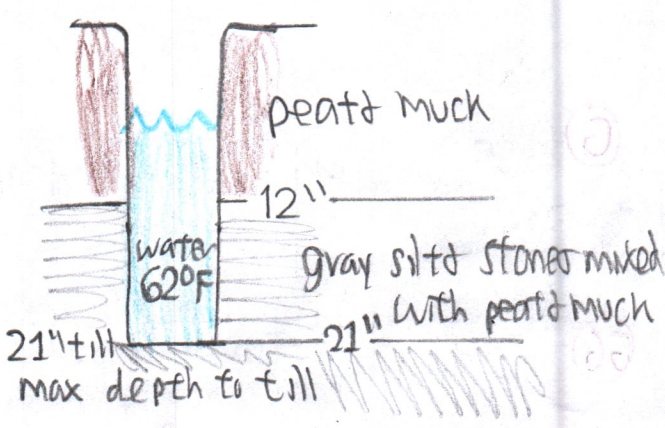 peat & muck
12"
water
62°F
gray silt & stones mixed
with peat & muck
21" till
21"
max depth to till